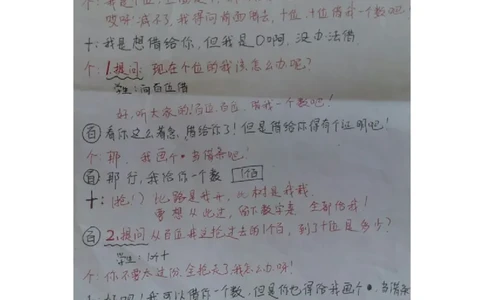 哎呀！减不了,我得问前面借去,十位、十位借我一个数吧
十：我是想借给你,但我是0啊,没办法借
个：1.提问：现在个位的我该怎么办呢？
学生：向百位借
好,听大家的！百位、百位,借我一个数吧！
百 看你这么着急,借给你了！但是借给你得有个证明吧！
个：那,我画个·当借条吧！
百 那行,我给你一个数 1个百
十：(抢)此路是我开,此树是我栽,
要想从此过,留下数字来 全部给我！
百 2.提问 从百位我这抢过去的1个百,到了十位是多少？
学生：10个十
个：你不要太过份,全抢去了我怎么办呀！
好吧！我可以借你一个数,但是你也得给我画个·当借条